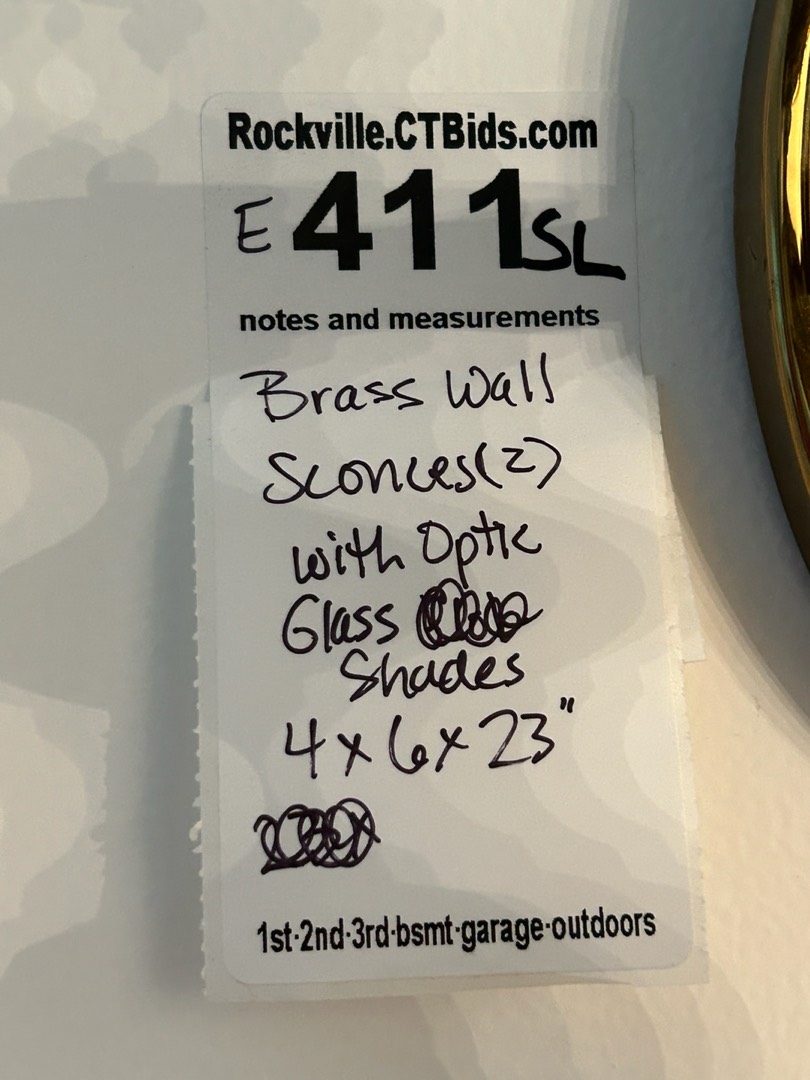 Rockville.CTBids.com
E 411SL
notes and measurements
Brass Wall
Sconces(2)
with Optic
Glass
Shades
4x6x23"
1st·2nd·3rd·bsmt·garage·outdoors